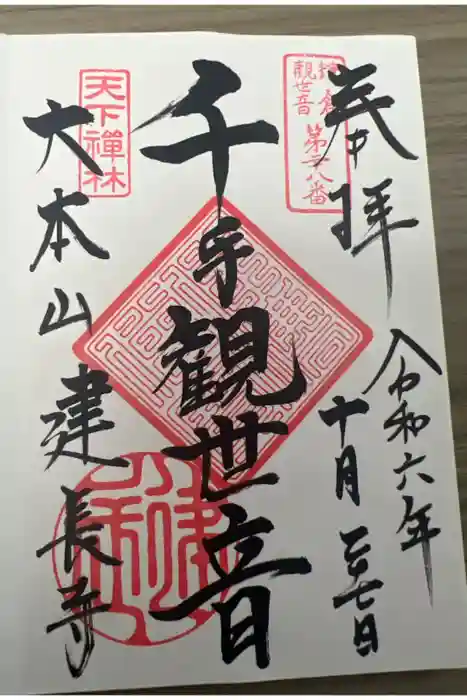 奉拝
令和六年
十月二十七日
鎌倉
觀世音
第二八番
千手観世音
天下禪林
大本山建長寺